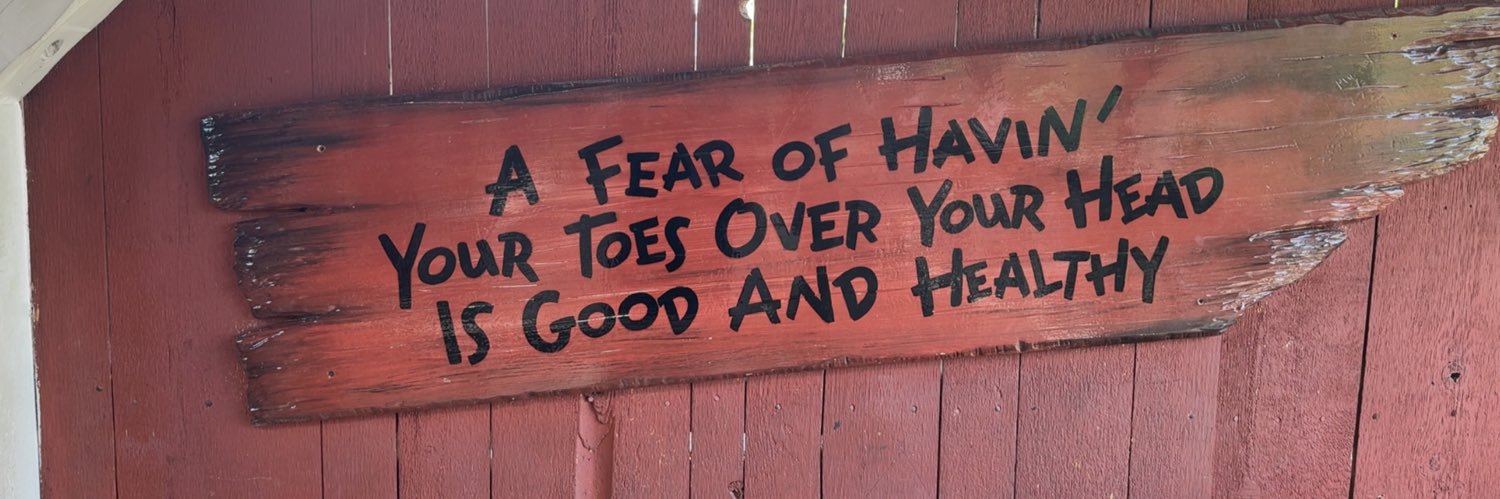 A FEAR OF HAVIN'
YOUR TOES OVER YOUR HEAD
IS GOOD AND HEALTHY